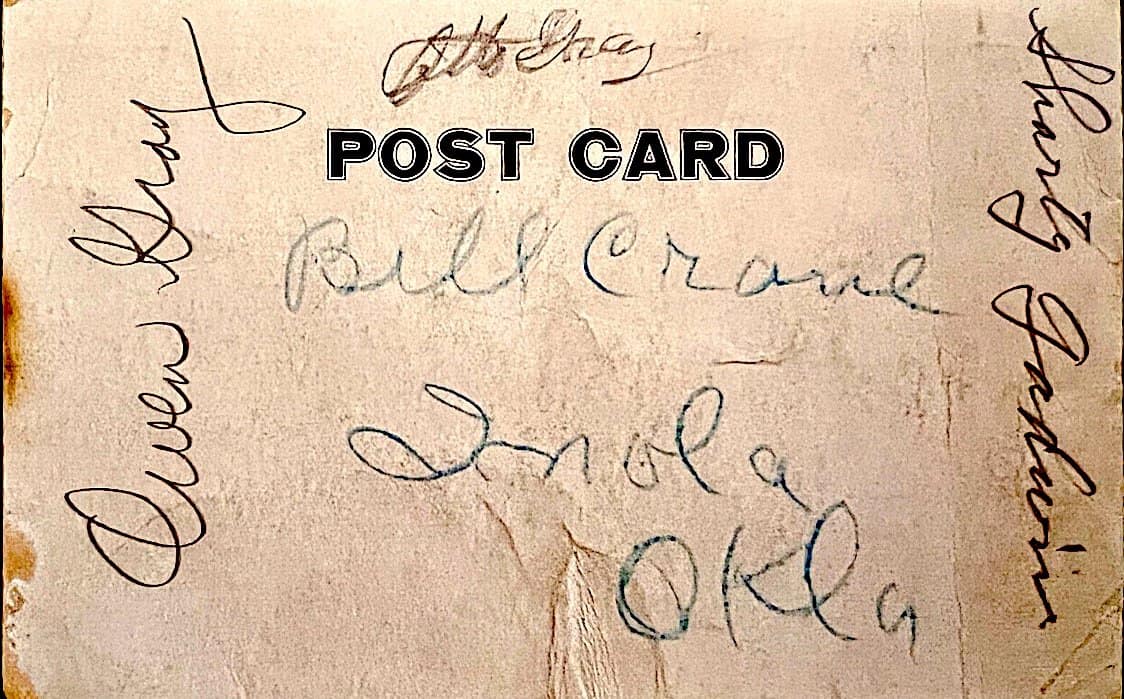 Otto Gray
POST CARD
Owen Gray
Bill Crane
Inola
Okla
Shorty Gadwin